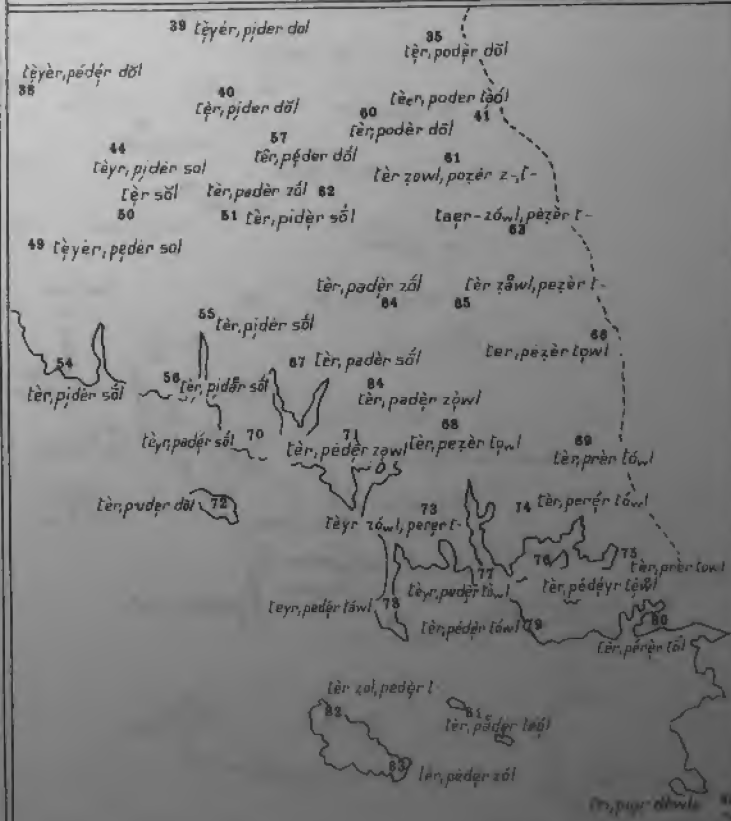 39 tèyér, pider dol
35
tèr, podèr dŏl
tèyèr, pédér dŏl
38
40
tèr, pider dŏl
tèer, poder tàol
41
60
tèr, podèr dŏl
57
têr, péder dŏl
44
tèyr, pidèr sol
61
tèr zowl, pozèr z-, t-
tèr sŏl
50
tèr, padèr zŏl 62
51 tèr, pidèr sŏl
taer-zówl, pèzèr t-
63
49 tèyèr, pedèr sol
tèr, padèr zŏl
64
tèr zåwl, pezèr t-
65
55
tèr, pidèr sŏl
66
ter, pezèr towl
54
tèr, pidèr sŏl
56 tèr, pidèr sŏl
67 tèr, padèr sŏl
84
tèr, padèr zòwl
tèyr, padér sŏl 70
71
tèr, pédèr zawl
68
tèr, pezèr towl
69
tèr, prèr tówl
tèr, puder dŏl 72
73
tèyr zówl, perer t-
74 tèr, perér tówl
75
tèr, prèr towl
76
tèr, pédéyr tèwl
77
tèyr, pedèr tòwl
teyr, pedèr tàwl 78
tèr, pédèr tówl 79
80
tèr, pérèr tŏl
tèr zol, pedèr t-
82
81
tèr, påder taol
83
tèr, pèdèr zól